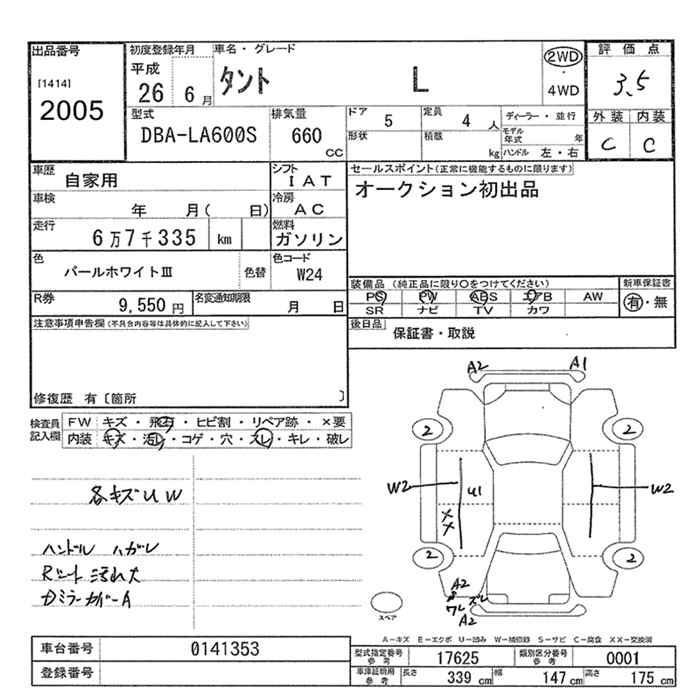 出品番号
[1414]
2005
初度登録年月
平成
26 6月
車名・グレード
タント L
2WD
・
4WD
評価点
3.5
外装 内装
C C
型式
DBA-LA600S
排気量
660
CC
ドア 5
定員 4 人
形状
積載 kg
ディーラー・並行
モデル年式 年
ハンドル 左・右
車歴
自家用
シフト
IAT
車検
年 月( 日)
冷房
AC
走行
6万7千335 km
燃料
ガソリン
色
パールホワイトⅢ
色替
色コード
W24
R券
9,550 円
名変通知期限
月 日
セールスポイント(正常に機能するものに限ります)
オークション初出品
装備品(純正品に限り○をつけてください)
PS PW ABS エアB AW
SR ナビ TV カワ
新車保証書
有・無
後日品
保証書・取説
注意事項申告欄(不具合内容等は具体的に記入して下さい)
修復歴 有〔箇所 〕
検査員記入欄
FW キズ・飛石・ヒビ割・リペア跡・×要
内装 キズ・汚れ・コゲ・穴・スレ・キレ・破レ
各キズUW
ハンドル ハガレ
Rシート汚れ大
DミラーカバーA
A2 A1
2 2
W2 U1 W2
XX
2 2
A2
ズレ
ワレ
A2
スペア
A－キズ E－エクボ U－凹み W－補修跡 S－サビ C－腐食 XX－交換済
車台番号
0141353
登録番号
型式指定番号
参考
17625
類別区分番号
参考
0001
車庫証明用
参考
長さ 339 cm
幅 147 cm
高さ 175 cm